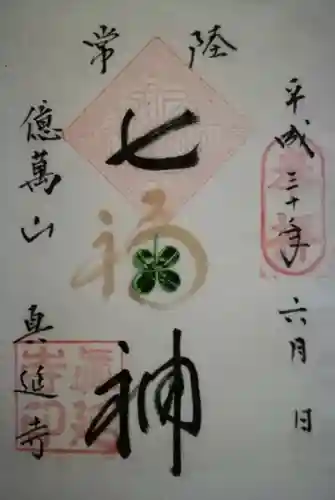 常陸
平成三十年 六月 日
奉拝
七福神
億萬山 真延寺